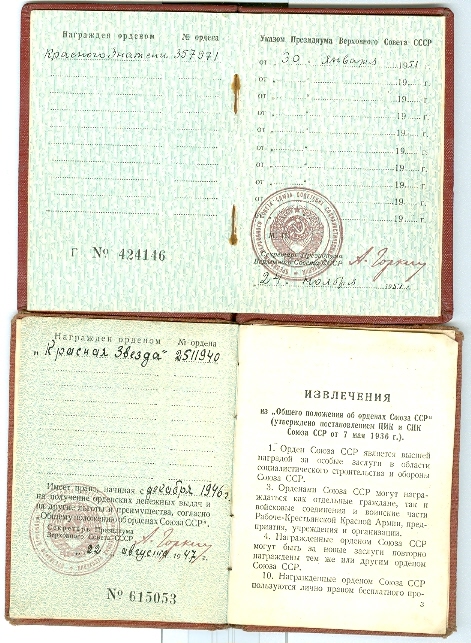 Награжден орденом № ордена
Красного Знамени 357971
Г № 424146
Указом Президиума Верховного Совета СССР
от „ 30 „ января 1951 г.
от „ „ 19 г.
от „ „ 19 г.
от „ „ 19 г.
от „ „ 19 г.
от „ „ 19 г.
от „ „ 19 г.
от „ „ 19 г.
от „ „ 19 г.
от „ „ 19 г.
Секретарь Президиума
Верховного Совета СССР А. Горкин
„ 24 „ ноября 1951 г.
Награжден орденом № ордена
„Красная Звезда" 2511940
Имеет право, начиная с декабря 1946 г.
на получение орденских выдач и
на другие льготы и преимущества, согласно
„Общему положению об орденах Союза ССР".
Секретарь Президиума
Верховного Совета СССР А. Горкин
„ 22 „ августа 1947 г.
№ 615053
ИЗВЛЕЧЕНИЯ
из „Общего положения об орденах Союза ССР"
(утверждено постановлением ЦИК и СНК
Союза ССР от 7 мая 1936 г.).
1. Орден Союза ССР является высшей
наградой за особые заслуги в области
социалистического строительства и обороны
Союза ССР.
3. Орденами Союза ССР могут награ-
ждаться как отдельные граждане, так и
войсковые соединения и воинские части
Рабоче-Крестьянской Красной Армии, пред-
приятия, учреждения и организации.
4. Награжденные орденом Союза ССР
могут быть за новые заслуги повторно
награждены тем же или другим орденом
Союза ССР.
10. Награжденные орденом Союза ССР
пользуются лично правом бесплатного про-
3